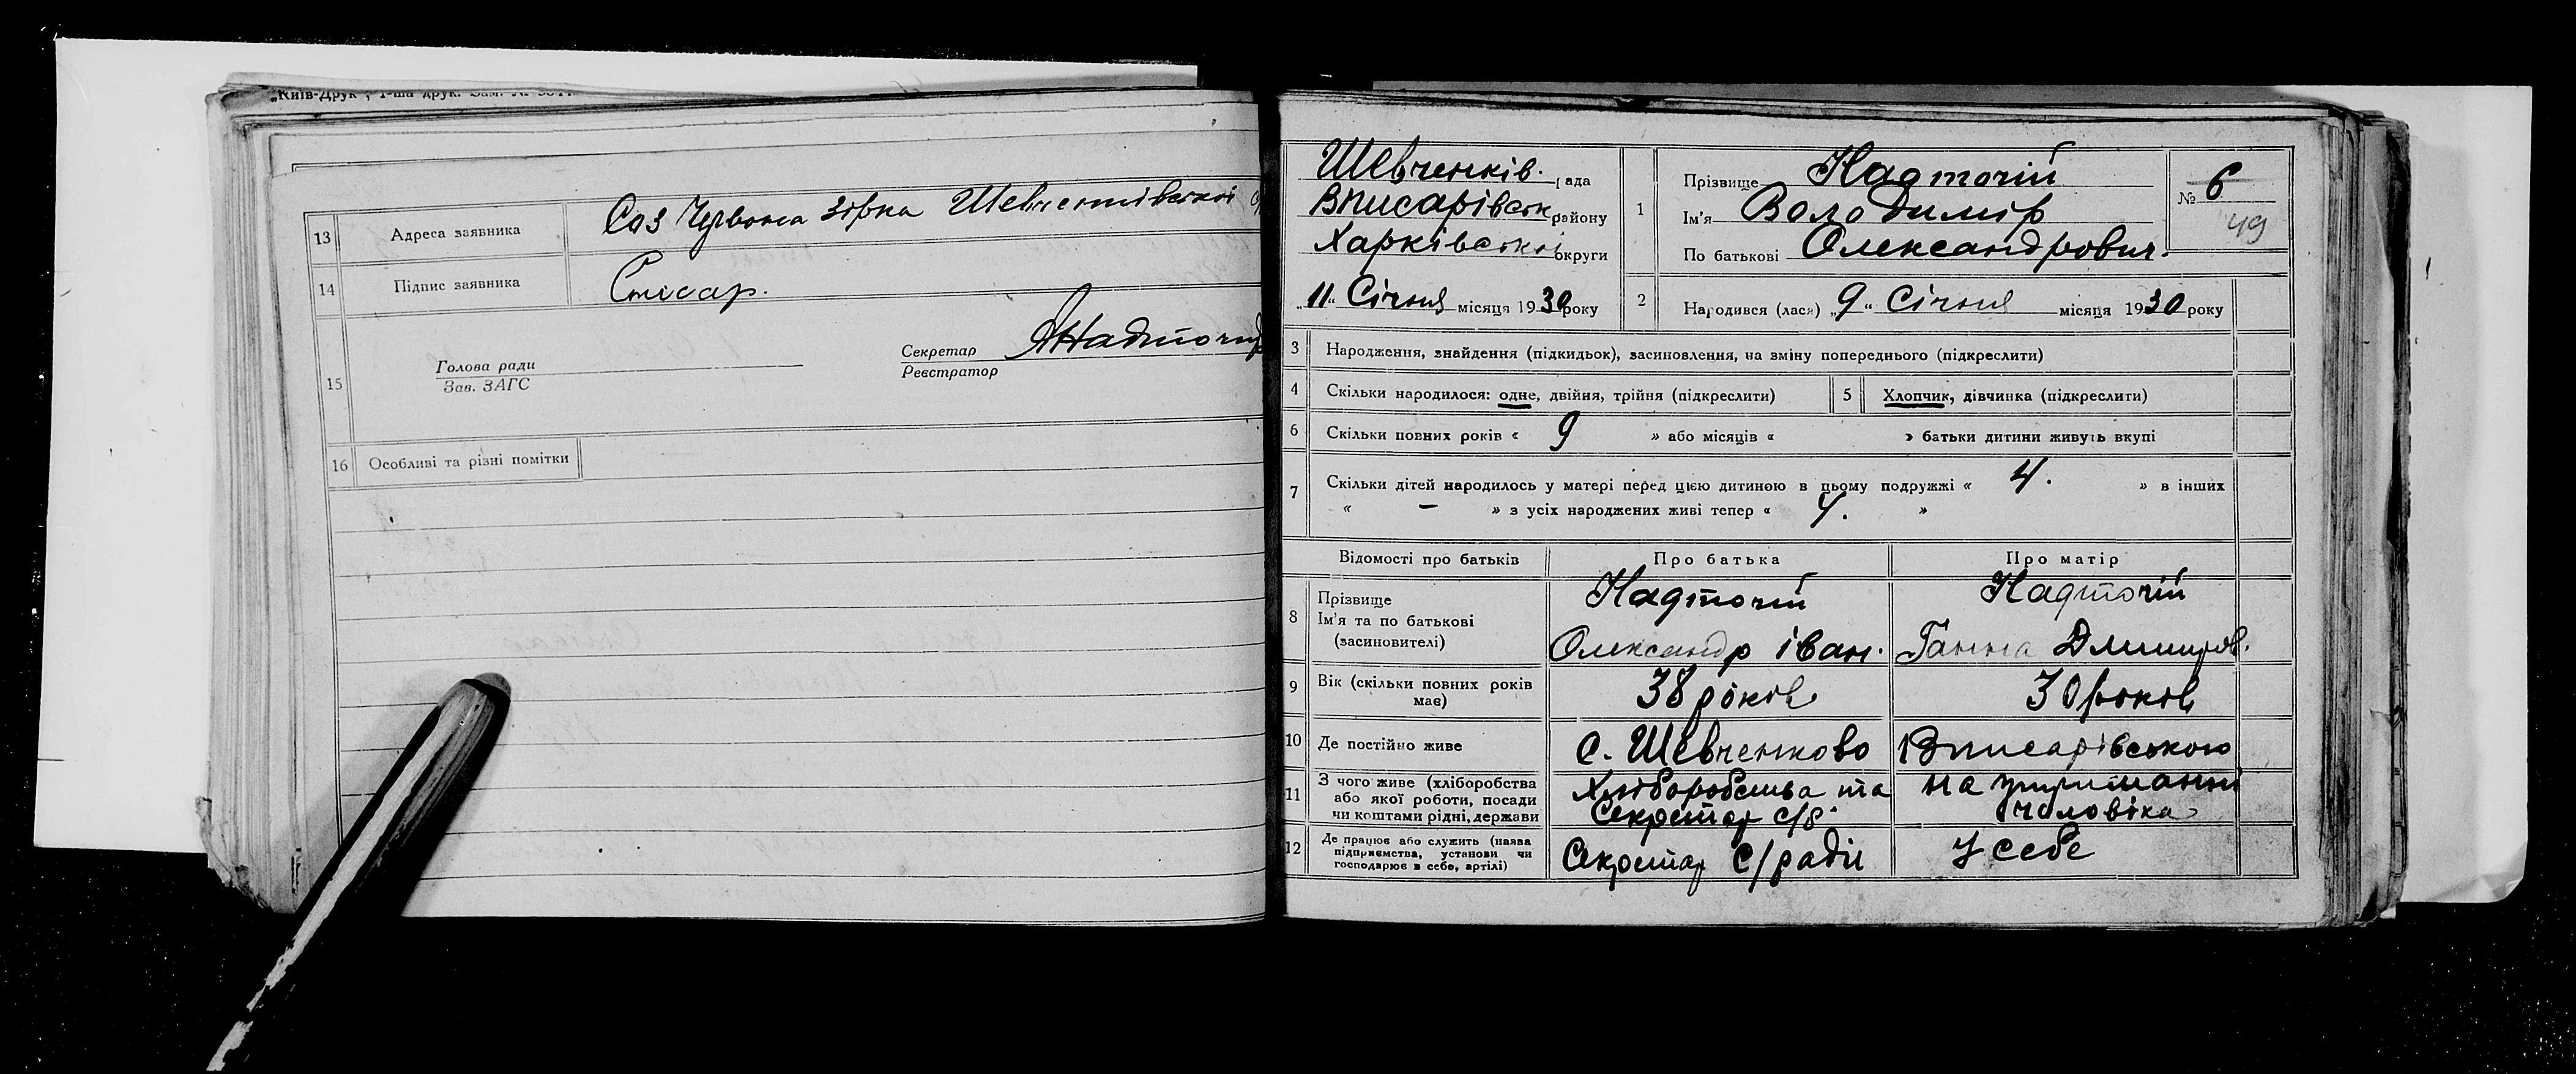 „Київ-Друк", 1-ша друк. Зам. №
13 Адреса заявника Соз Червона зірка Шевченківської
14 Підпис заявника Слісар.
15 Голова ради
Зав. ЗАГС
Секретар
Реєстратор
ЯНадточий
16 Особливі та різні помітки
Шевченків. рада
Вписарівськ району
Харківської округи
„11" Січня місяця 1930 року
1 Прізвище Надточій
Ім'я Володимір
По батькові Олександрович.
№ 6
49
2 Народився (лася) „9" Січня місяця 1930 року
3 Народження, знайдення (підкидьок), засиновлення, на зміну попереднього (підкреслити)
4 Скільки народилося: одне, двійня, трійня (підкреслити) 5 Хлопчик, дівчинка (підкреслити)
6 Скільки повних років « 9 » або місяців « » батьки дитини живуть вкупі
7 Скільки дітей народилось у матері перед цією дитиною в цьому подружжі « 4. » в інших
« — » з усіх народжених живі тепер « 4. »
Відомості про батьків Про батька Про матір
8 Прізвище Надточій Надточій
Ім'я та по батькові
(засиновителі) Олександр Іван. Ганна Дмитров.
9 Вік (скільки повних років
має) 38 років 30 років
10 Де постійно живе с. Шевченково Вписарівського
11 З чого живе (хліборобства
або якої роботи, посади
чи коштами рідні, держави
Хліборобства та
Секретар с/р
на утриманні
чоловіка
12 Де працює або служить (назва
підприємства, установи чи
господарює в себе, артілі)
Секретар с/ради у себе